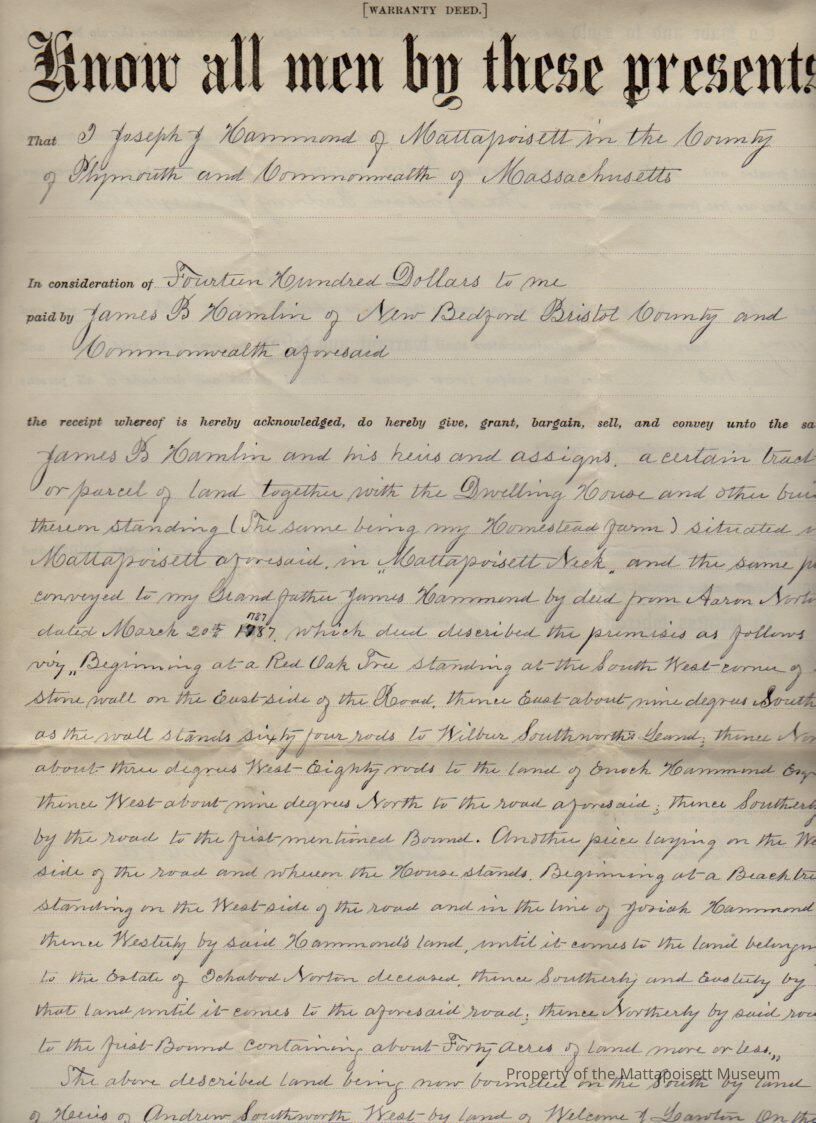 [WARRANTY DEED.]
Know all men by these presents
That I Joseph J Hammond of Mattapoisett in the County
of Plymouth and Commonwealth of Massachusetts
In consideration of Fourteen Hundred Dollars to me
paid by James B Hamlin of New Bedford Bristol County and
Commonwealth aforesaid
the receipt whereof is hereby acknowledged, do hereby give, grant, bargain, sell, and convey unto the sa
James B Hamlin and his heirs and assigns, a certain tract
or parcel of land together with the Dwelling House and other bui
thereon standing (The same being my Homestead farm) situated
Mattapoisett aforesaid, in "Mattapoisett Neck" and the same
conveyed to my Grand father James Hammond by deed from Aaron Norto
dated March 20th 1787, which deed described the premises as follows
viz, "Beginning at a Red Oak Tree standing at the South West corner of
stone wall on the East side of the Road, thence East about nine degrees South
as the wall stands sixty four rods to Wilbur Southworth's Land; thence Nor
about three degrees West Eighty rods to the land of Enoch Hammond Esq
thence West about nine degrees North to the road aforesaid; thence Southerly
by the road to the first mentioned Bound. Another piece laying on the We
side of the road and whereon the House stands. Beginning at a Beach tre
standing on the West side of the road and in the line of Josiah Hammond
thence Westerly by said Hammond's land, until it comes to the land belongin
to the Estate of Ichabod Norton deceased, thence Southerly and Easterly by
that land until it comes to the aforesaid road; thence Northerly by said roa
to the first Bound containing about Forty acres of land more or less,"
The above described land being now bounded on the South by land
of Heirs of Andrew Southworth West by land of Welcome J Lawton On the
Property of the Mattapoisett Museum